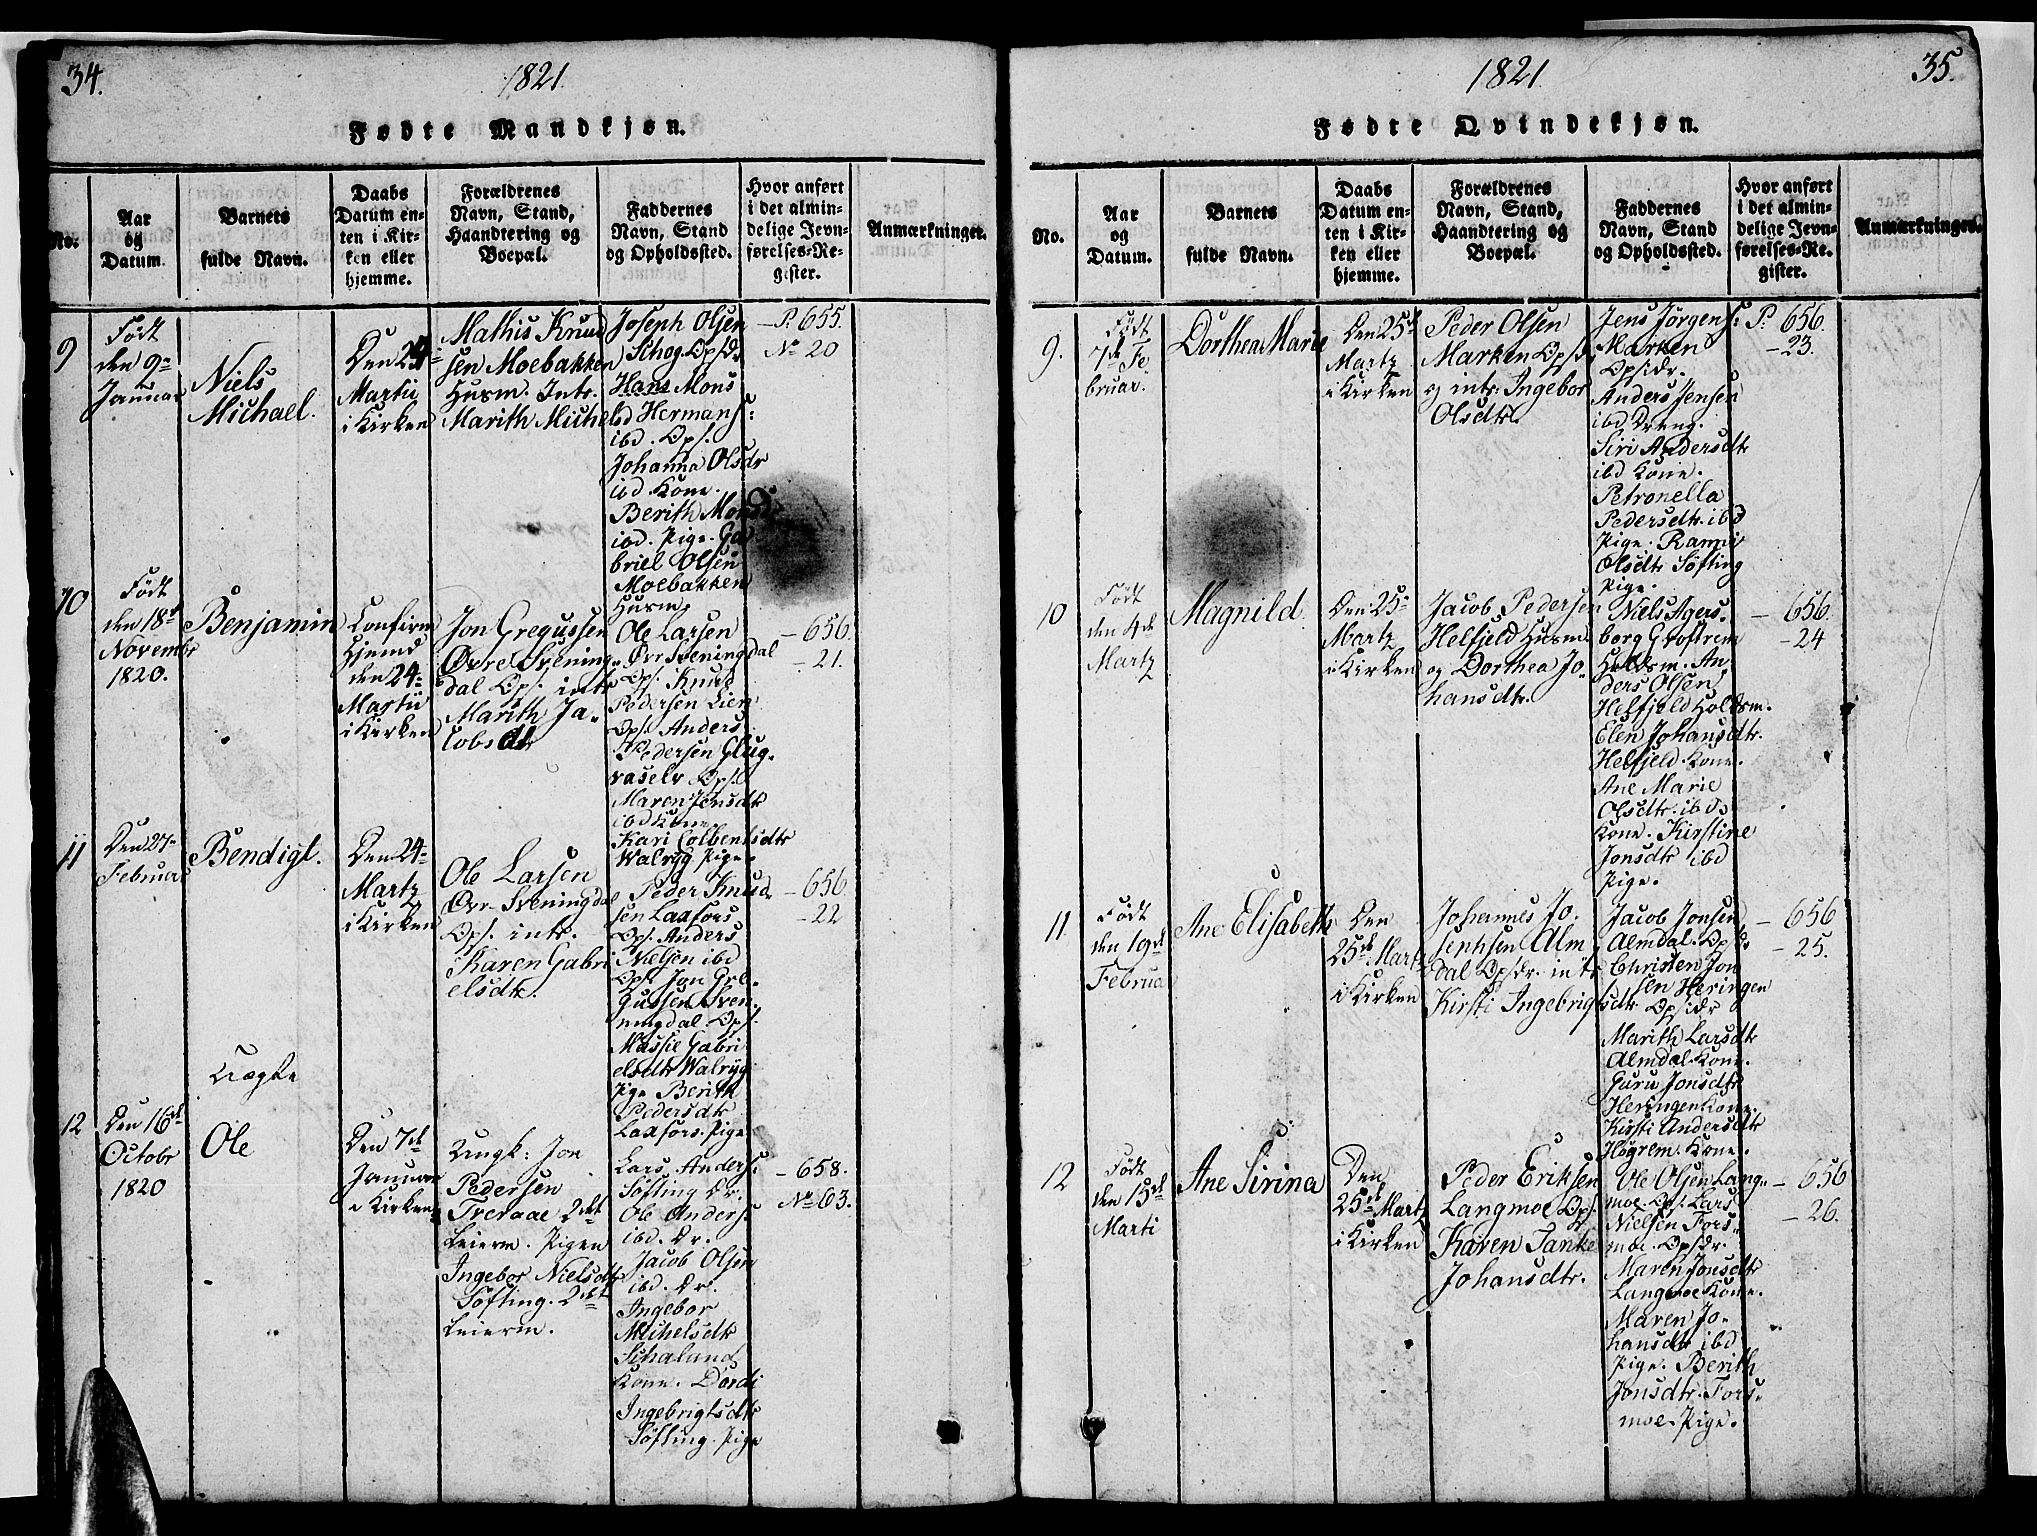 34.
1821.
Fødte Mandkjøn.
No.
Aar
og
Datum.
Barnets
fulde Navn.
Daabs
Datum en-
ten i Kir-
ken eller
hjemme.
Forældrenes
Navn, Stand,
Haandtering og
Boepæl.
Faddernes
Navn, Stand
og Opholdssted.
Hvor anført
i det almin-
delige Jevn-
førelses-Re-
gister.
Anmærkninger.
9
Født
den 9de
Januar
Niels
Michael.
Den 24
Martii
i Kirken
Mathis Knud
sen Moebakken
Husm. Intr.
Marith Michel
Joseph Olsen
Schog Ops.
Hans Mons
ibd Hermans:
ibd. Ops.
Johanna Olsdr
ibd. Kone.
Berith Monsd
ibd. Pige. Ga
briel Olsen
Moebakken
Husm.
P. 655.
No 20
10
Født
den 18de
Novembr
1820.
Benjamin
Confirm
Hjemd
den 24
Martii
i Kirken
Jon Gregussen
Øvre Svening
dal Ops. intr
Marith Ja-
cobsdtr
Ole Larsen
Øvr Sveningdal
Ops. Knud
Pedersen Lien
Ops. Anders
Pedersen Glug-
vaselv Ops.
Maren Jensdtr
ibd Kone.
Kari Colbentsdtr
Walryg Pige.
- 656.
- 21.
11
Den 27
Februar
Bendigt.
Den 24
Martz
i Kirken
Ole Larsen
Øvr Sveningdal
Ops. intr.
Karen Gabri
elsdtr.
Peder Knud
sen Laxfors
Ops. Anders
Nielsen ibd
Ops. Jon Gre-
gussen Sven-
ningdal. Ops.
Massie Gabri
elsdtr Walryg
Pige Berith
Pedersdtr
Laxfors. Pige
- 656.
- 22
Uægte
12
Den 16de
Octobr
1820
Ole
Den 7de
Januar
i Kirken
Ungk: Jon
Pedersen
Tveraae 2det
Leierm. Pigen
Ingebor Nielsdtr
Søfting. 2det
Leierm.
Lars Anders:
Søfting Dr.
Ole Anders:
ibd. Dr.
Jacob Olsen
ibd. Dr.
Ingebor
Michelsdtr
Schalund
Kone. Dordi
Ingebrigtsdtr
Søfting. Pige
- 658.
No 63.
1821.
35.
Fødte Qvindekjøn.
No.
Aar
og
Datum.
Barnets
fulde Navn.
Daabs
Datum en-
ten i Kir-
ken eller
hjemme.
Forældrenes
Navn, Stand,
Haandtering og
Boepæl.
Faddernes
Navn, Stand
og Opholdssted.
Hvor anført
i det almin-
delige Jevn-
førelses-Re-
gister.
Anmærkninger.
9.
Født
7de Fe
bruar.
Dorthea Marie
Den 25de
Martz
i Kirken
Peder Olsen
Marken Opsdr
og intr. Ingebor
Olsdtr.
Jens Jørgens:
Marken
Opsidr.
Anders Jensen
ibd Dreng.
Siri Andersdtr
ibd Kone.
Petronella
Pedersdtr. ibd
Pige. Rannie
Olsdtr Søfting
Pige.
P. 656.
- 23.
10
Født
den 4de
Martz
Magnild.
Den 25
Martz
i Kirken
Jacob Pedersen
Helfjeld Husm.
og Dorthea Jo-
hansdtr.
Niels Agers-
borg Groftrem
Holdsm. An-
ders Olsen
Helfjeld Holdsm.
Elen Johansdtr.
Helfjeld. Kone.
Ane Marie
Olsdtr. ibd
Kone. Kirstine
Jonsdtr ibd
Pige.
- 656.
- 24
11
Født
den 19de
Februar
Ane Elisabeth
Den
25de Martz
i Kirken
Johannes Jo-
Alm
dal Opsdr. intr
Kirsti Ingebrigtsdtr
Jacob Jonsen
Almdal. Ops.
Christen Jon
sen Heringen
Opsidr
Marith Larsdtr
Almdal. Kone.
Guru Jonsdtr
Heringen Kone.
Kirsti Andersdtr
Høgrem. Kone.
- 656
- 25.
12
Født
den 15de
Marti
Ane Sirina
Den
25de Martz
i Kirken
Peder Eriksen
Langmoe Ops.
Karen Tanke
Johansdtr.
Ole Olsen Lang-
moe Ops. Lars
Nielsen Fors-
moe. Opsdr.
Maren Jonsdtr
Langmoe Kone.
Maren Jo-
hansdtr ibd
Pige. Berith
Jonsdtr. Fors-
moe. Pige.
- 656
- 26.